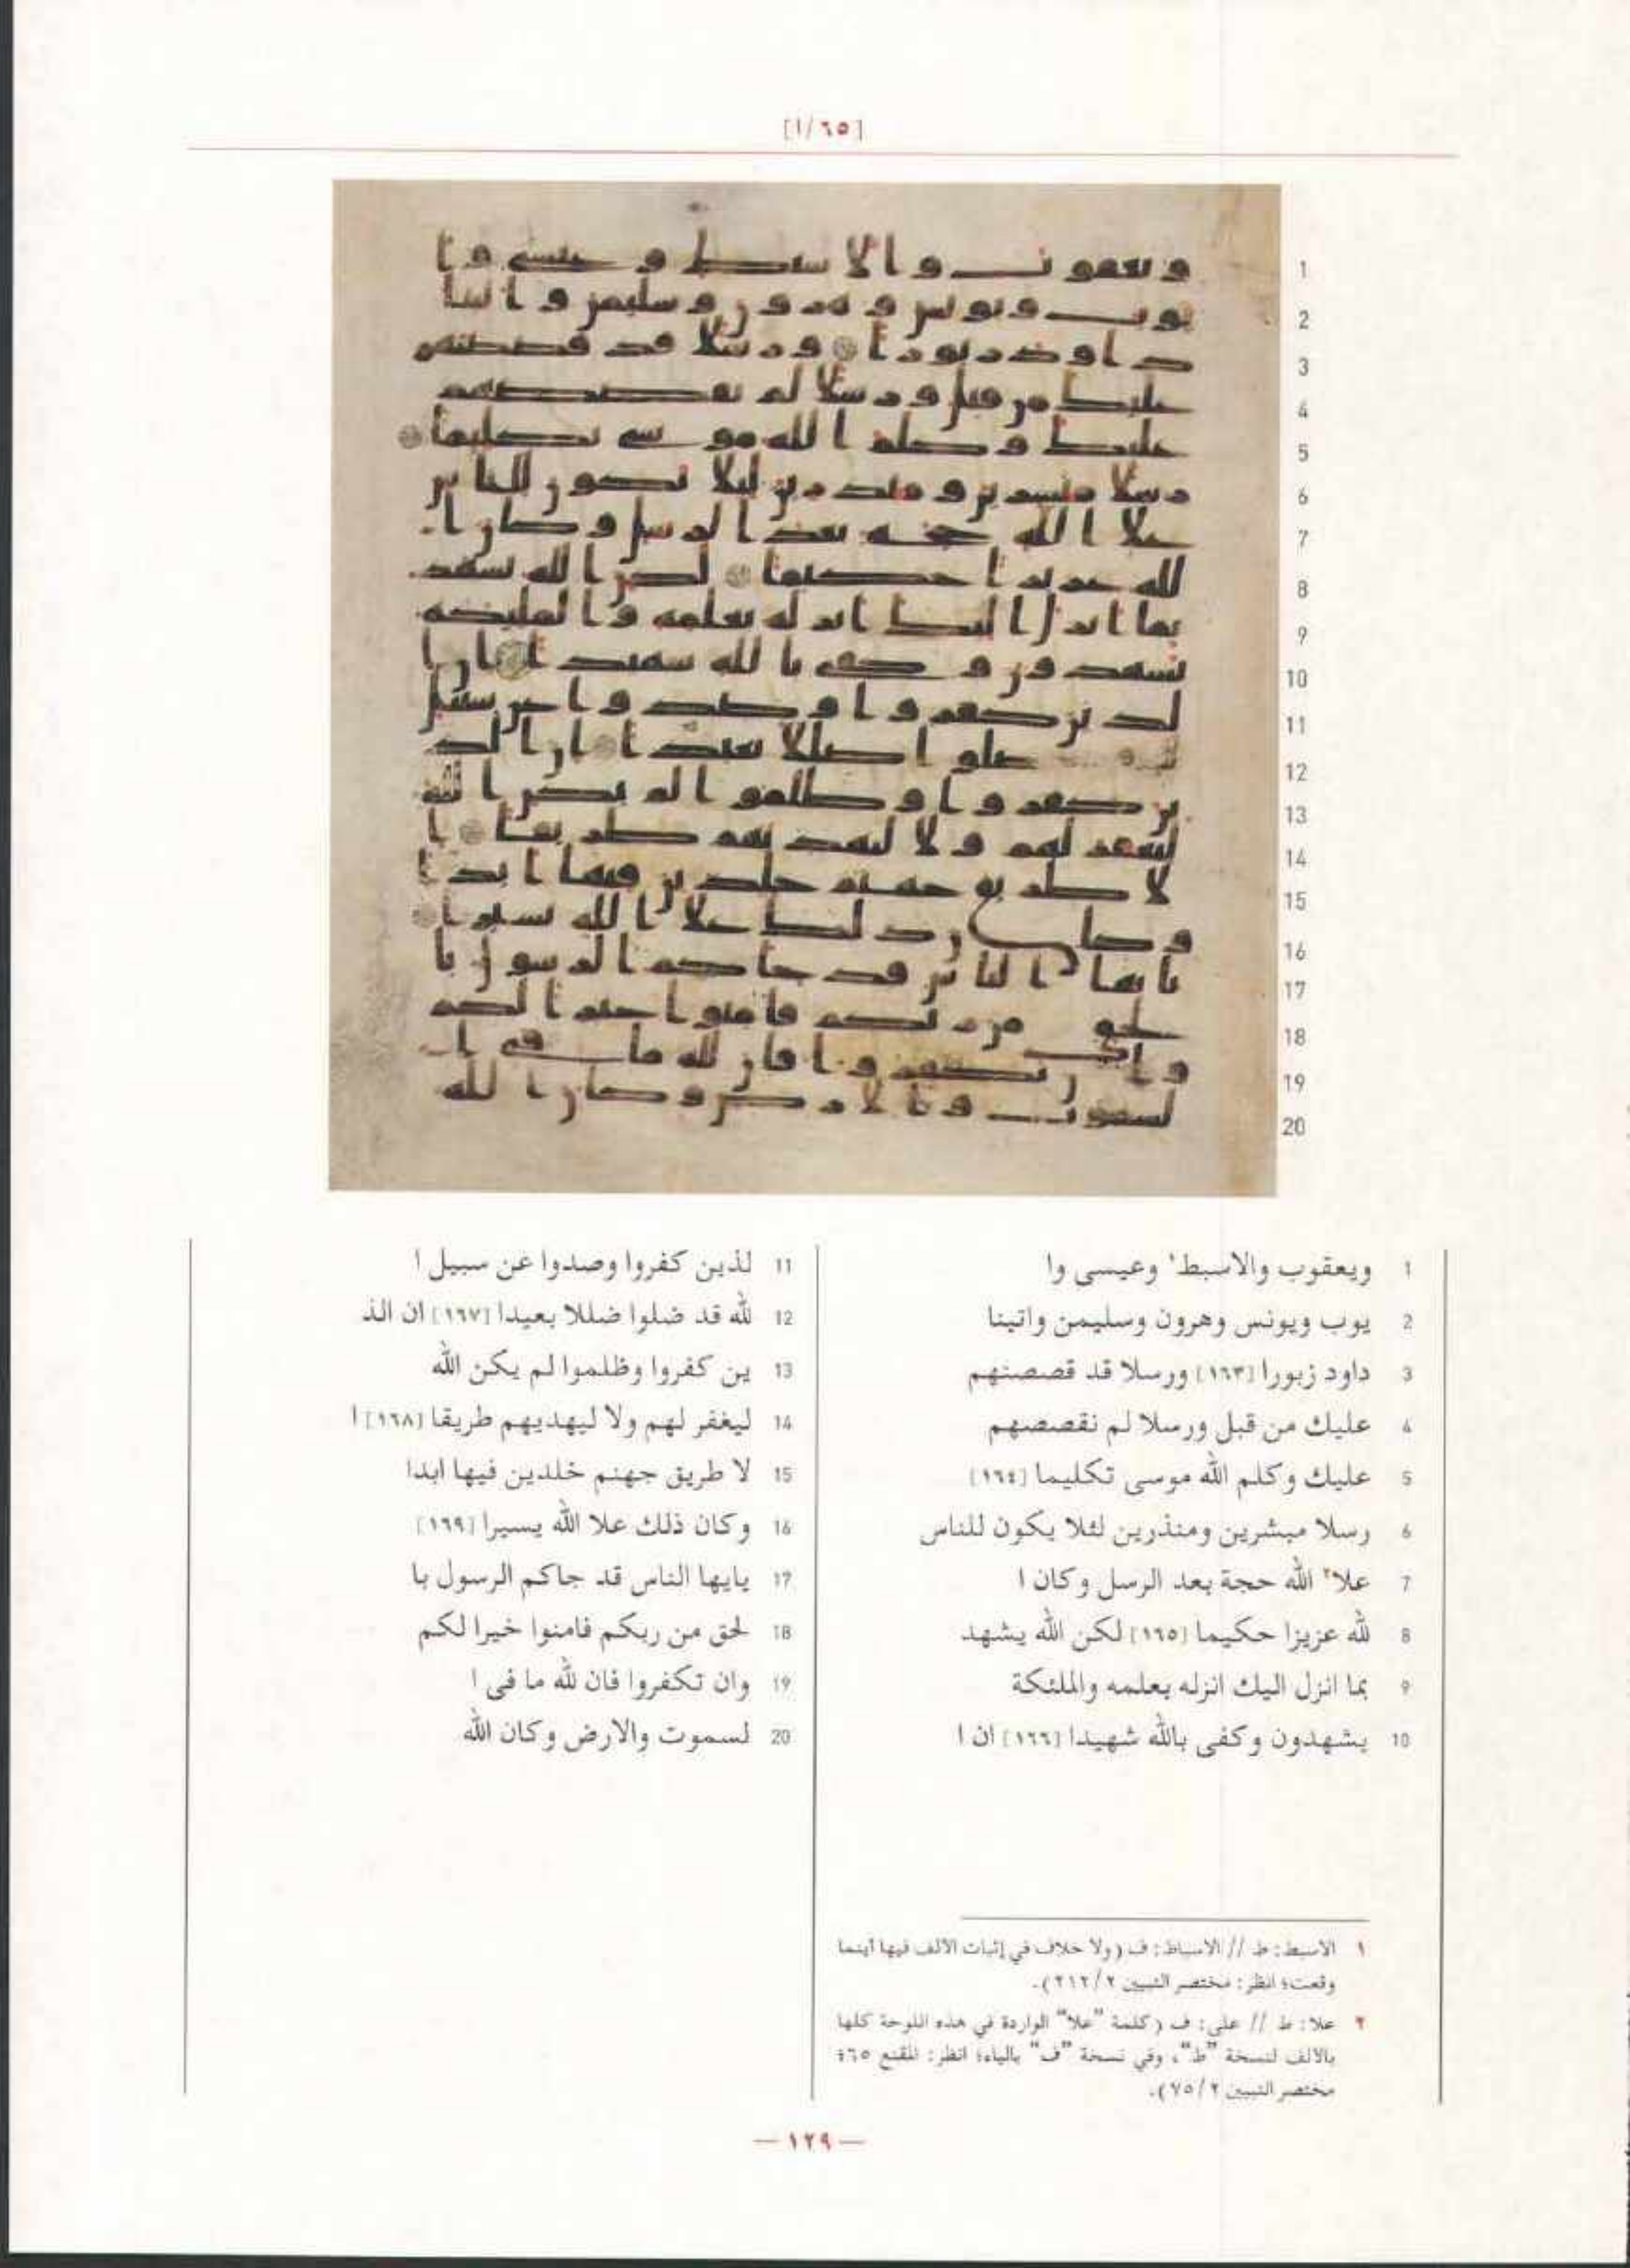 [١/٦٥]
1 ويعقوب والاسبط١ وعيسى وا
2 يوب ويونس وهرون وسليمن واتينا
3 داود زبورا [١٦٣] ورسلا قد قصصنهم
4 عليك من قبل ورسلا لم نقصصهم
5 عليك وكلم الله موسى تكليما [١٦٤]
6 رسلا مبشرين ومنذرين لئلا يكون للناس
7 علا٢ الله حجة بعد الرسل وكان ا
8 لله عزيزا حكيما [١٦٥] لكن الله يشهد
9 بما انزل اليك انزله بعلمه والملئكة
10 يشهدون وكفى بالله شهيدا [١٦٦] ان ا
11 لذين كفروا وصدوا عن سبيل ا
12 لله قد ضلوا ضللا بعيدا [١٦٧] ان الذ
13 ين كفروا وظلموا لم يكن الله
14 ليغفر لهم ولا ليهديهم طريقا [١٦٨] ا
15 لا طريق جهنم خلدين فيها ابدا
16 وكان ذلك علا الله يسيرا [١٦٩]
17 يايها الناس قد جاكم الرسول با
18 لحق من ربكم فامنوا خيرا لكم
19 وان تكفروا فان لله ما فى ا
20 لسموت والارض وكان الله
١ الاسبط: ط // الاسباط: ف (ولا خلاف في إثبات الالف فيها أينما
وقعت؛ انظر: مختصر التبيين ٢/٢١٢).
٢ علا: ط // على: ف (كلمة "علا" الواردة في هذه اللوحة كلها
بالالف لنسخة "ط"، وفي نسخة "ف" بالياء؛ انظر: المقنع ٦٥؛
مختصر التبيين ٢/٧٥).
— ١٢٩ —